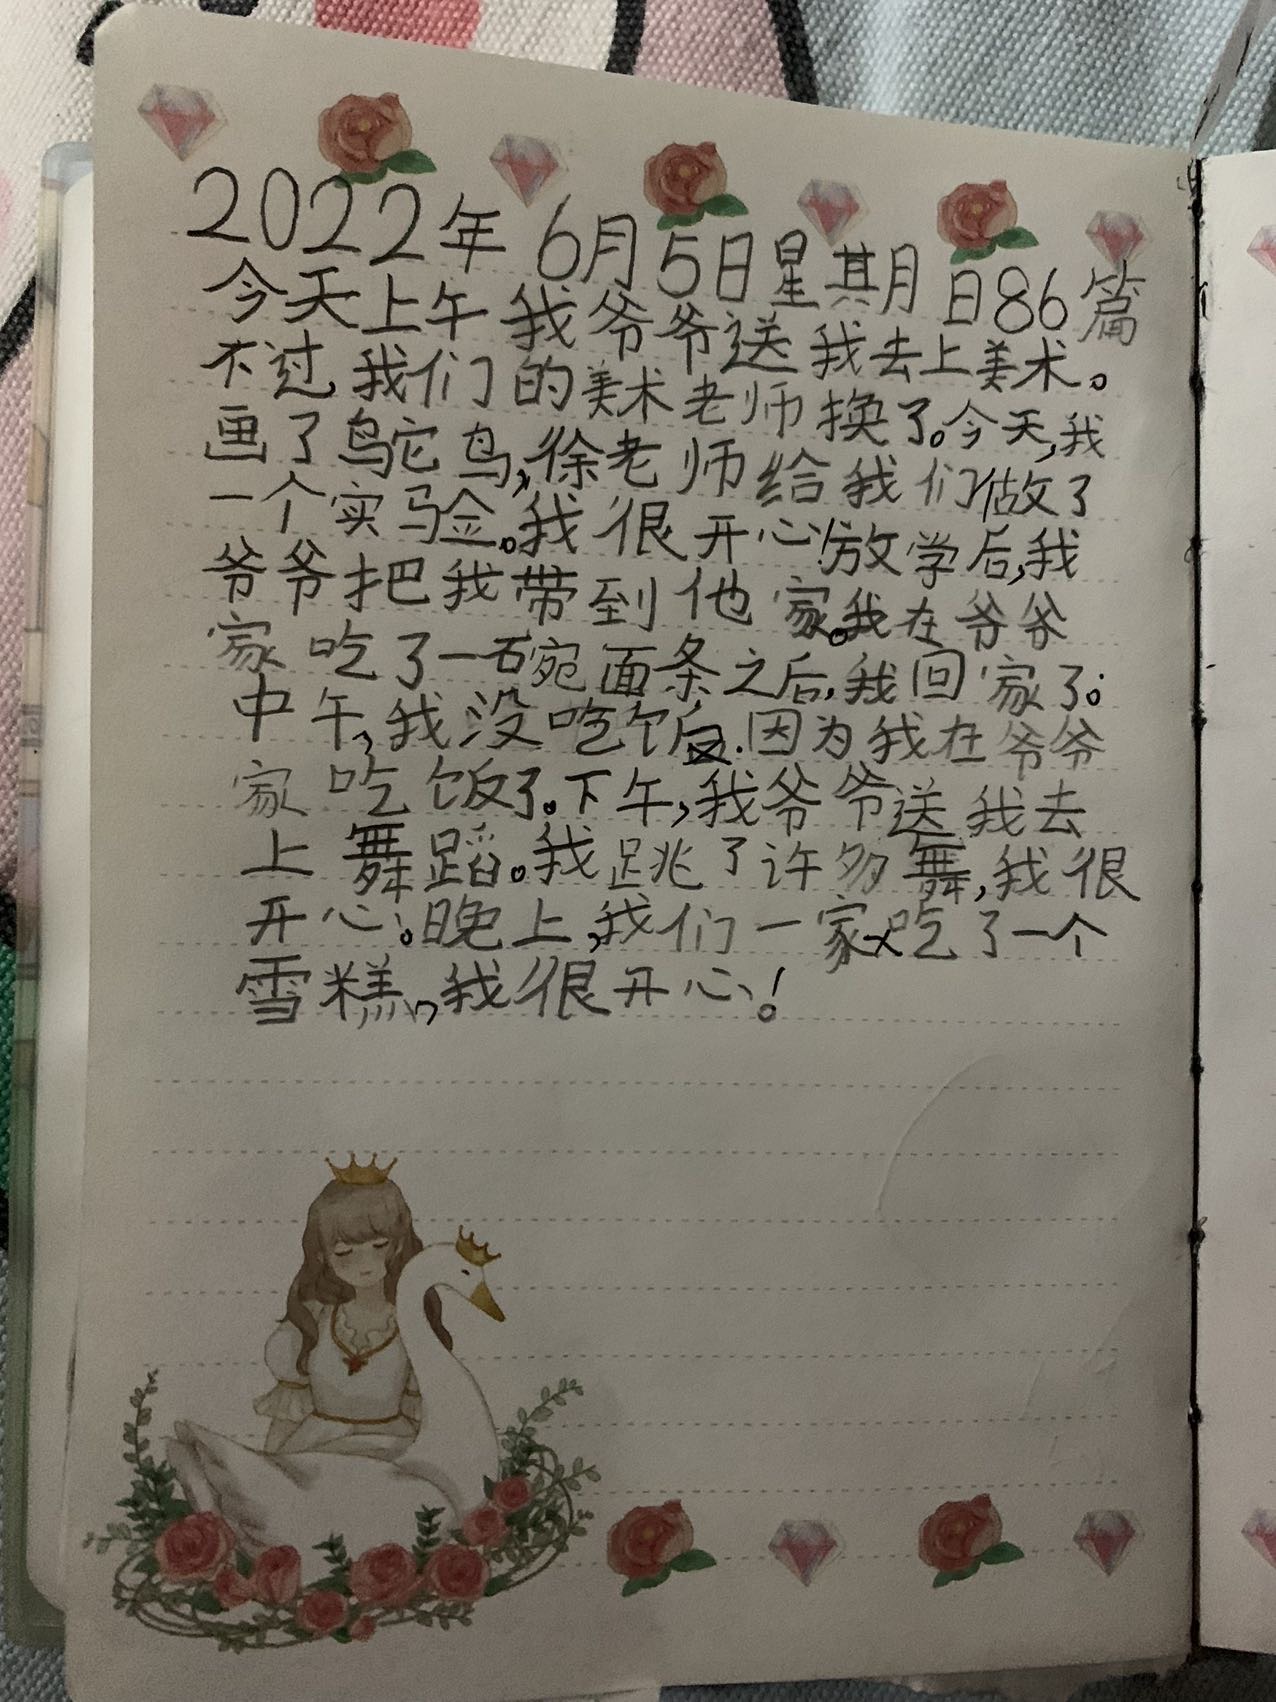 2022年6月5日星期日86篇
今天上午我爷爷送我去上美术。
不过我们的美术老师换了。今天,我
画了鸵鸟,徐老师给我们做了
一个实验。我很开心!放学后,我
爷爷把我带到他家。我在爷爷
家吃了一碗面条之后,我回家了。
中午,我没吃饭.因为我在爷爷
家吃饭了。下午,我爷爷送我去
上舞蹈。我跳了许多舞,我很
开心。晚上,我们一家吃了一个
雪糕,我很开心!